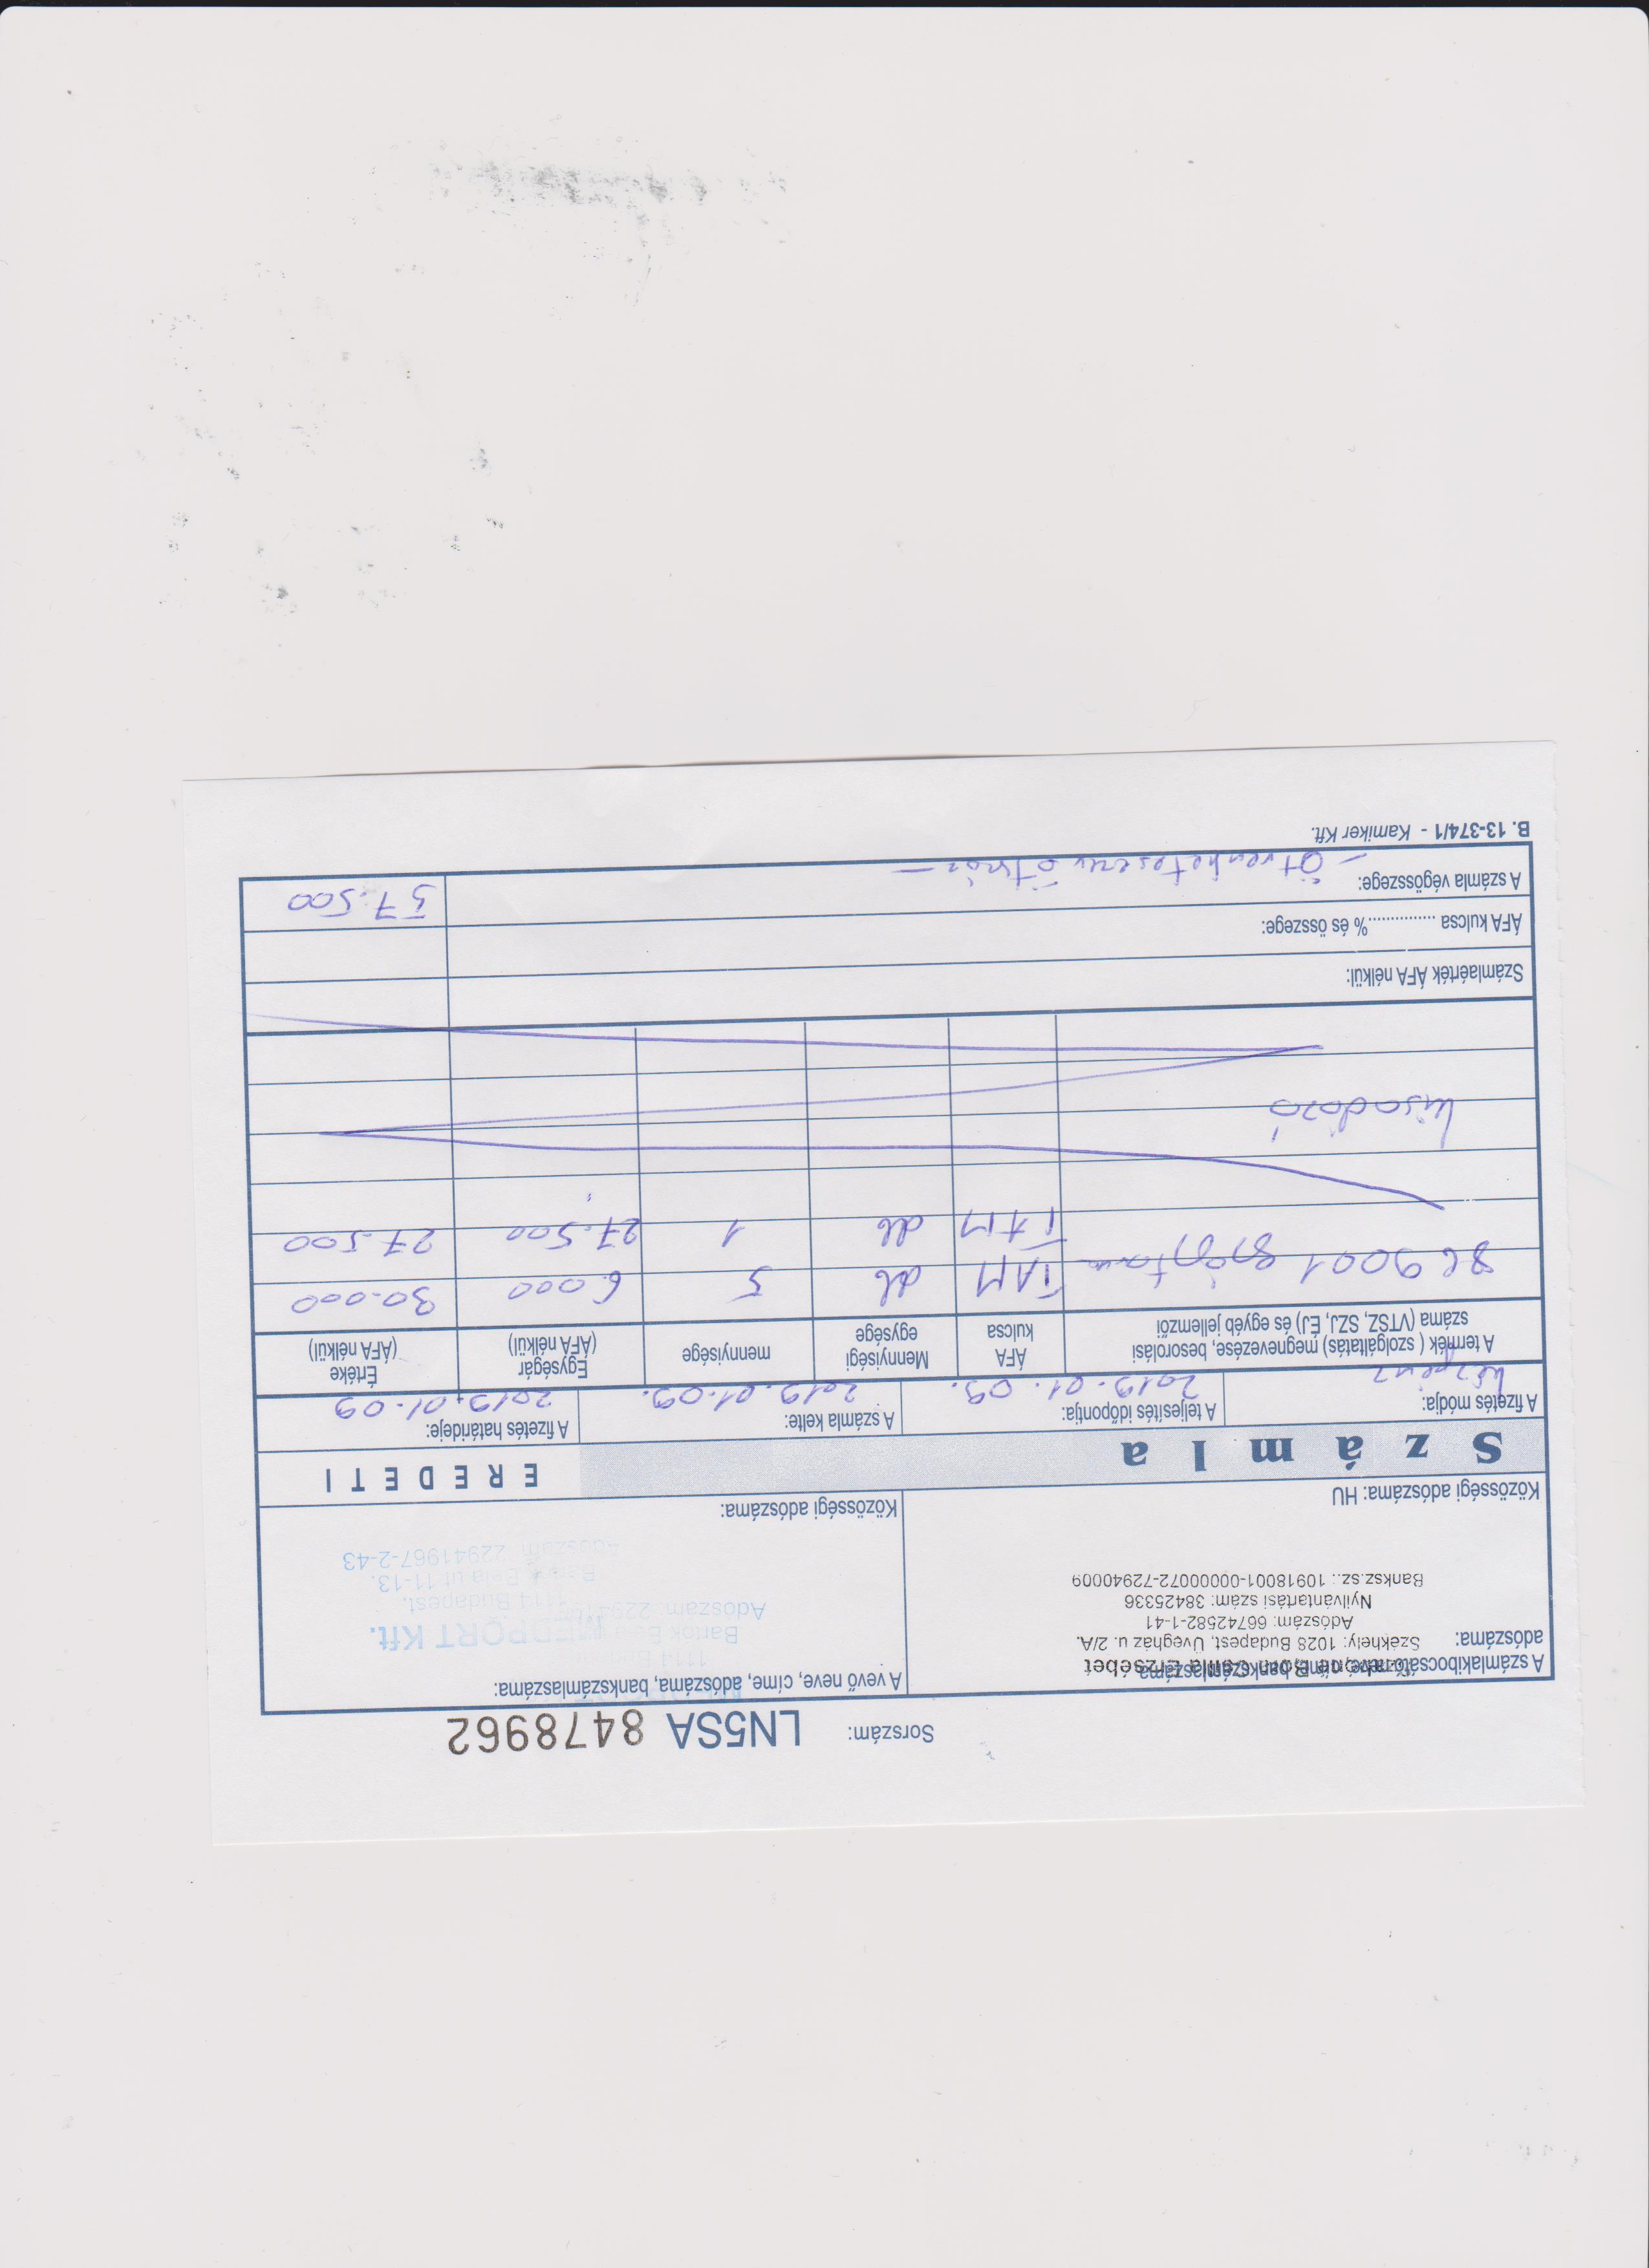 Sorszám: LN5SA 8478962
A számlakibocsátó neve, címe, bankszámlaszáma,
Born Csilla Erzsébet
adószáma:
Székhely: 1028 Budapest, Üvegház u. 2/A.
Adószám: 66742582-1-41
Nyilvántartási szám: 38425336
Banksz.sz.: 10918001-00000072-72940009
Közösségi adószáma: HU
A vevő neve, címe, adószáma, bankszámlaszáma:
1114
Bartók
Adószám:
MEDPORT Kft.
1114 Budapest,
Bartók Béla út 11-13.
Adószám: 22941967-2-43
Közösségi adószáma:
Számla
EREDETI
A fizetés módja: A teljesítés időpontja: A számla kelte: A fizetés határideje:
készpénz 2019.01.09. 2019.01.09. 2019.01.09
A termék ( szolgáltatás) megnevezése, besorolási száma (VTSZ, SZJ, ÉJ) és egyéb jellemzői
ÁFA kulcsa
Mennyiségi egysége
mennyisége
Egységár (ÁFA nélkül)
Értéke (ÁFA nélkül)
869001 gyógytorna TAM db 5 6.000 30.000
TAM db 1 27.500 27.500
kisadózó
Számlaérték ÁFA nélkül:
ÁFA kulcsa ..............% és összege:
57.500
A számla végösszege: - Ötvenhétezer ötszáz -
B. 13-374/1 - Kamiker Kft.